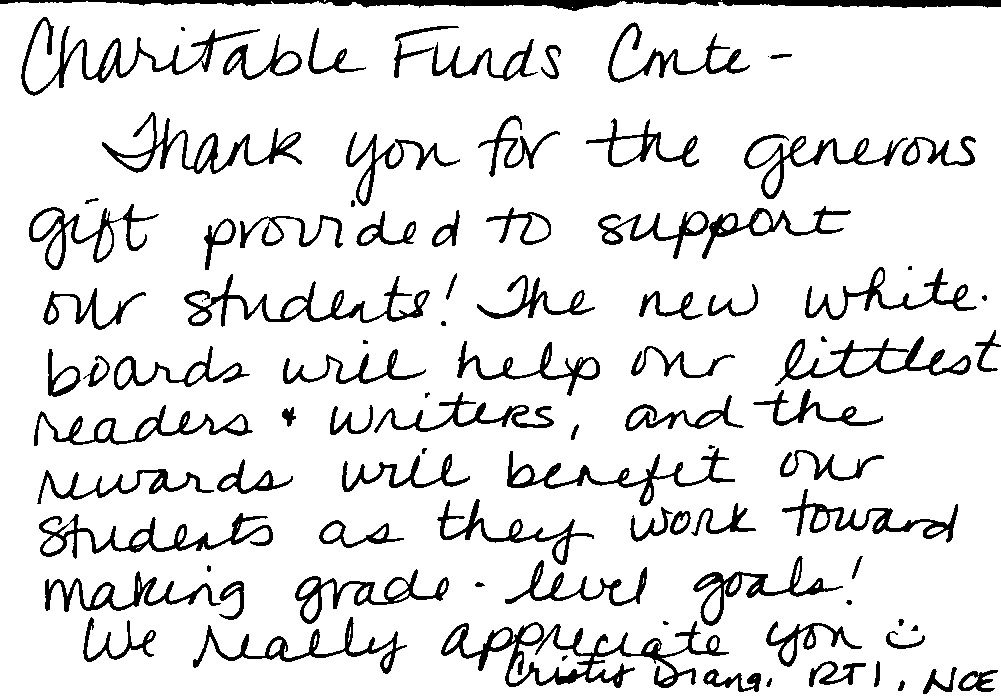 Charitable Funds Cmte -
Thank you for the generous
gift provided to support
our students! The new white-
boards will help our littlest
readers + writers, and the
rewards will benefit our
students as they work toward
making grade-level goals!
We really appreciate you :)
RTI, NCE